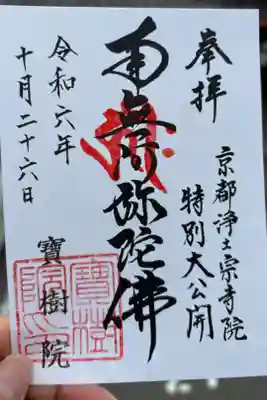 奉拝
京都浄土宗寺院
特別大公開
南無阿弥陀佛
令和六年
十月二十六日
寶樹院
寶樹院印